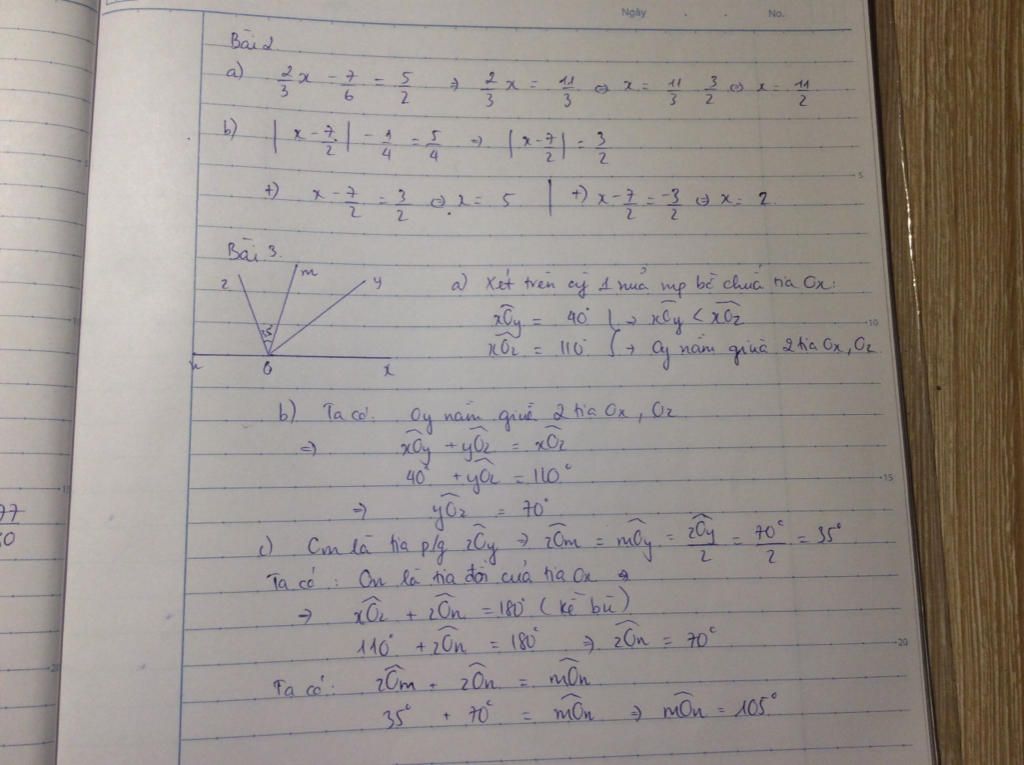 Ngày . . No.
Bài 2.
a) 2/3 x - 7/6 = 5/2 => 2/3 x = 11/3 <=> x = 11/3 . 3/2 <=> x = 11/2
b) | x - 7/2 | - 1/4 = 5/4 => | x - 7/2 | = 3/2
+) x - 7/2 = 3/2 <=> x = 5 | +) x - 7/2 = -3/2 <=> x = 2
5
Bài 3.
z m y
35
n O x
a) Xét trên cg 1 nửa mp bờ chứa tia Ox:
xÔy = 40° } => xÔy < xÔz
10
xÔz = 110° } => Oy nằm giữa 2 tia Ox, Oz
b) Ta có: Oy nằm giữa 2 tia Ox, Oz
=> xÔy + yÔz = xÔz
40° + yÔz = 110°
15
=> yÔz = 70°
77
50
c) Om là tia p/g zÔy => zÔm = mÔy = zÔy/2 = 70°/2 = 35°
Ta có: On là tia đối của tia Ox =>
=> xÔz + zÔn = 180° (kề bù)
110° + zÔn = 180° => zÔn = 70°
20
Ta có: zÔm + zÔn = mÔn
35° + 70° = mÔn => mÔn = 105°